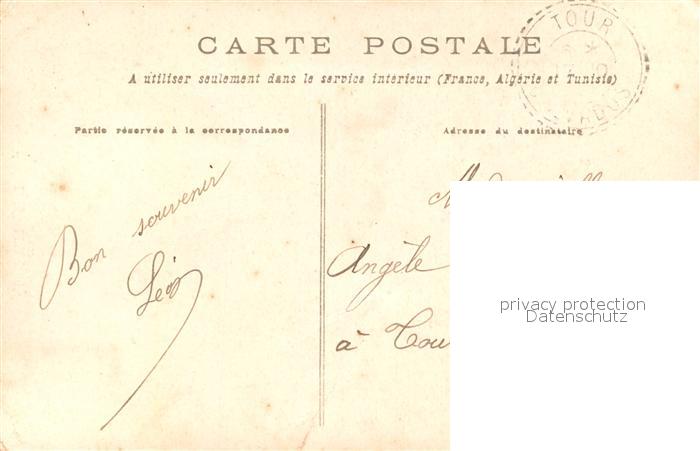 CARTE POSTALE
A utiliser seulement dans le service intérieur (France, Algérie et Tunisie)
Partie réservée à la correspondance
Adresse du destinataire
TOUR
Bon souvenir
Léon
Angèle
à
privacy protection
Datenschutz